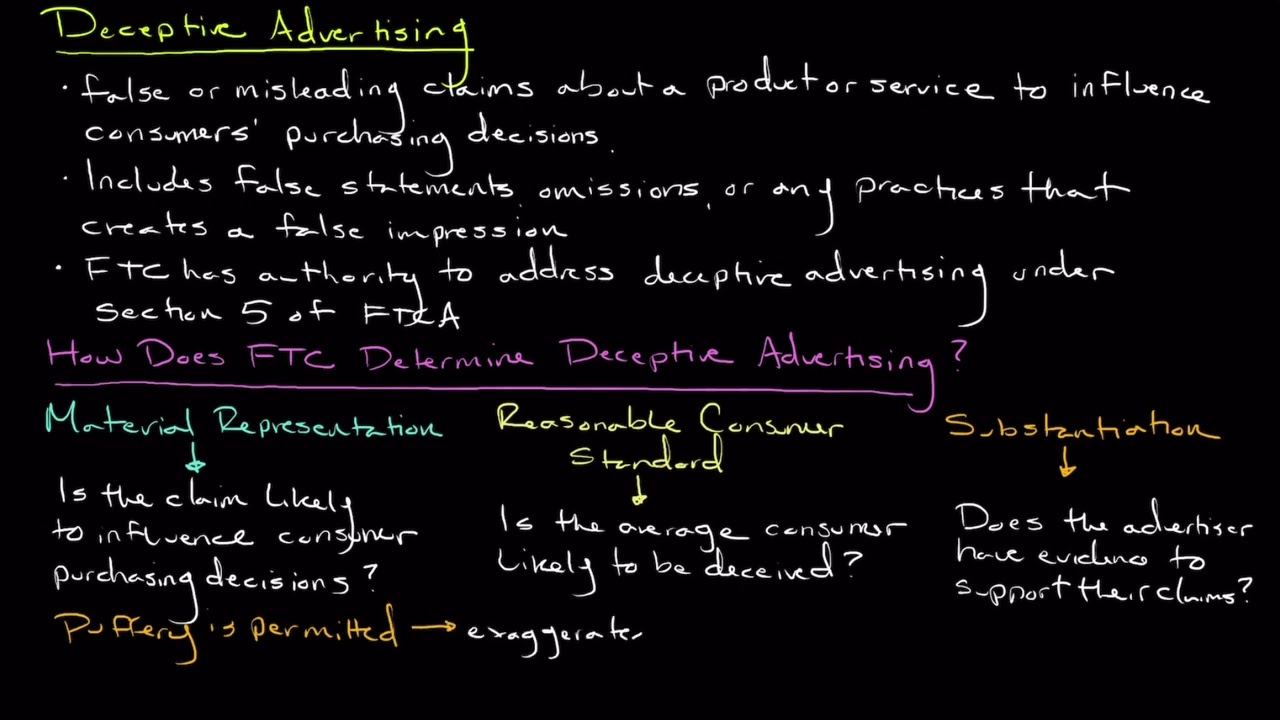 Deceptive Advertising
• False or misleading claims about a product or service to influence
consumers' purchasing decisions.
• Includes false statements, omissions, or any practices that
creates a false impression
• FTC has authority to address deceptive advertising under
Section 5 of FTCA
How Does FTC Determine Deceptive Advertising?
Material Representation
Is the claim likely
to influence consumer
purchasing decisions?
Reasonable Consumer
Standard
Is the average consumer
likely to be deceived?
Substantiation
Does the advertiser
have evidence to
support their claims?
Puffery is permitted → exaggerate